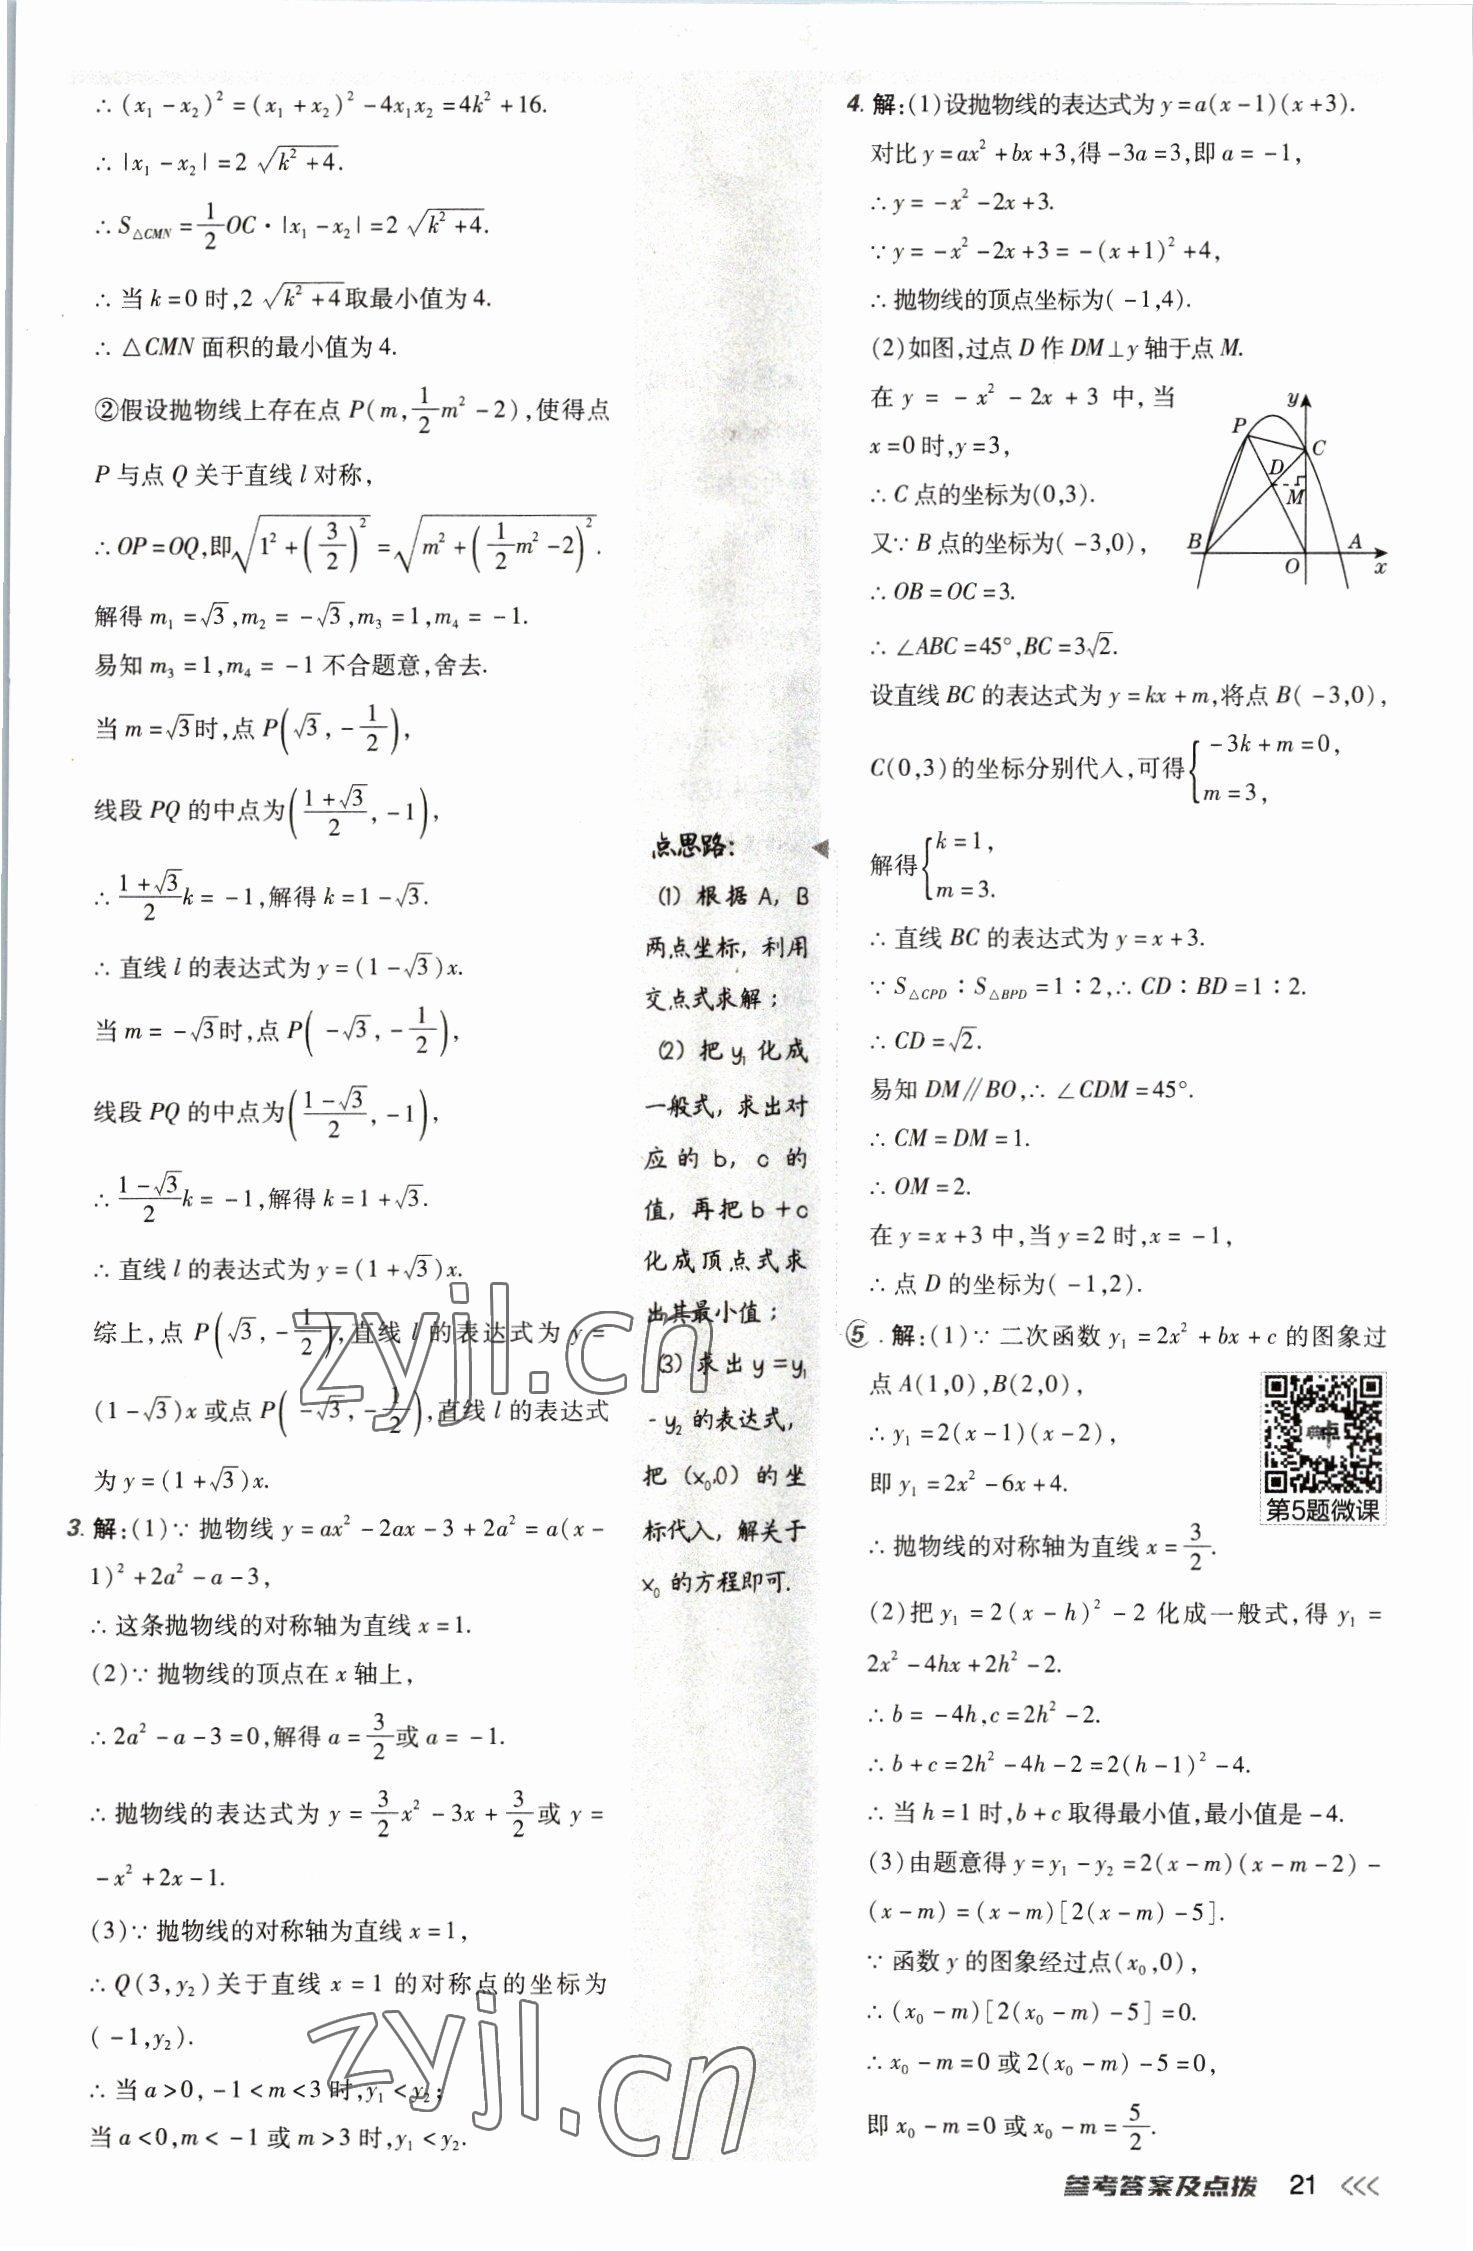 ∴ (x₁-x₂)²=(x₁+x₂)²-4x₁x₂=4k²+16.
∴ |x₁-x₂|=2√(k²+4).
∴ S△CMN=1/2 OC·|x₁-x₂|=2√(k²+4).
∴ 当k=0时,2√(k²+4)取最小值为4.
∴ △CMN面积的最小值为4.
②假设抛物线上存在点P(m,1/2 m²-2),使得点
P与点Q关于直线l对称,
∴OP=OQ,即√(1²+(3/2)²)=√(m²+(1/2 m²-2)²).
解得m₁=√3,m₂=-√3,m₃=1,m₄=-1.
易知m₃=1,m₄=-1不合题意,舍去.
当m=√3时,点P(√3,-1/2),
线段PQ的中点为((1+√3)/2,-1),
∴ (1+√3)/2 k=-1,解得k=1-√3.
∴ 直线l的表达式为y=(1-√3)x.
当m=-√3时,点P(-√3,-1/2),
线段PQ的中点为((1-√3)/2,-1),
∴ (1-√3)/2 k=-1,解得k=1+√3.
∴ 直线l的表达式为y=(1+√3)x.
综上,点P(√3,-1/2),直线l的表达式为y=
(1-√3)x或点P(-√3,-1/2),直线l的表达式
为y=(1+√3)x.
3. 解:(1)∵ 抛物线y=ax²-2ax-3+2a²=a(x-
1)²+2a²-a-3,
∴ 这条抛物线的对称轴为直线x=1.
(2)∵ 抛物线的顶点在x轴上,
∴2a²-a-3=0,解得a=3/2或a=-1.
∴ 抛物线的表达式为y=3/2 x²-3x+3/2或y=
-x²+2x-1.
(3)∵ 抛物线的对称轴为直线x=1,
∴ Q(3,y₂)关于直线x=1的对称点的坐标为
(-1,y₂).
∴ 当a>0,-1<m<3时,y₁<y₂;
当a<0,m<-1或m>3时,y₁<y₂.
点思路:
(1) 根据A, B
两点坐标, 利用
交点式求解;
(2) 把y₁化成
一般式, 求出对
应的b, c的
值, 再把b+c
化成顶点式求
出其最小值;
(3) 求出y=y₁
-y₂的表达式,
把(x₀,0)的坐
标代入, 解关于
x₀的方程即可.
4. 解:(1)设抛物线的表达式为y=a(x-1)(x+3).
对比y=ax²+bx+3,得-3a=3,即a=-1,
∴y=-x²-2x+3.
∵y=-x²-2x+3=-(x+1)²+4,
∴抛物线的顶点坐标为(-1,4).
(2)如图,过点D作DM⊥y轴于点M.
在y=-x²-2x+3中,当
x=0时,y=3,
∴ C点的坐标为(0,3).
又∵ B点的坐标为(-3,0),
∴ OB=OC=3.
∴ ∠ABC=45°,BC=3√2.
y
P
C
D
M
B
O
A
x
设直线BC的表达式为y=kx+m,将点B(-3,0),
C(0,3)的坐标分别代入,可得{-3k+m=0,
m=3,
解得{k=1,
m=3.
∴ 直线BC的表达式为y=x+3.
∵ S△CPD∶S△BPD=1∶2,∴ CD∶BD=1∶2.
∴ CD=√2.
易知DM∥BO,∴ ∠CDM=45°.
∴ CM=DM=1.
∴ OM=2.
在y=x+3中,当y=2时,x=-1,
∴ 点D的坐标为(-1,2).
⑤. 解:(1)∵ 二次函数y₁=2x²+bx+c的图象过
点A(1,0),B(2,0),
∴ y₁=2(x-1)(x-2),
即y₁=2x²-6x+4.
∴ 抛物线的对称轴为直线x=3/2.
典中点
第5题微课
(2)把y₁=2(x-h)²-2化成一般式,得y₁=
2x²-4hx+2h²-2.
∴ b=-4h,c=2h²-2.
∴ b+c=2h²-4h-2=2(h-1)²-4.
∴ 当h=1时,b+c取得最小值,最小值是-4.
(3)由题意得y=y₁-y₂=2(x-m)(x-m-2)-
(x-m)=(x-m)[2(x-m)-5].
∵ 函数y的图象经过点(x₀,0),
∴ (x₀-m)[2(x₀-m)-5]=0.
∴x₀-m=0或2(x₀-m)-5=0,
即x₀-m=0或x₀-m=5/2.
参考答案及点拨 21 <<<
zyjl.cn
zyjl.cn